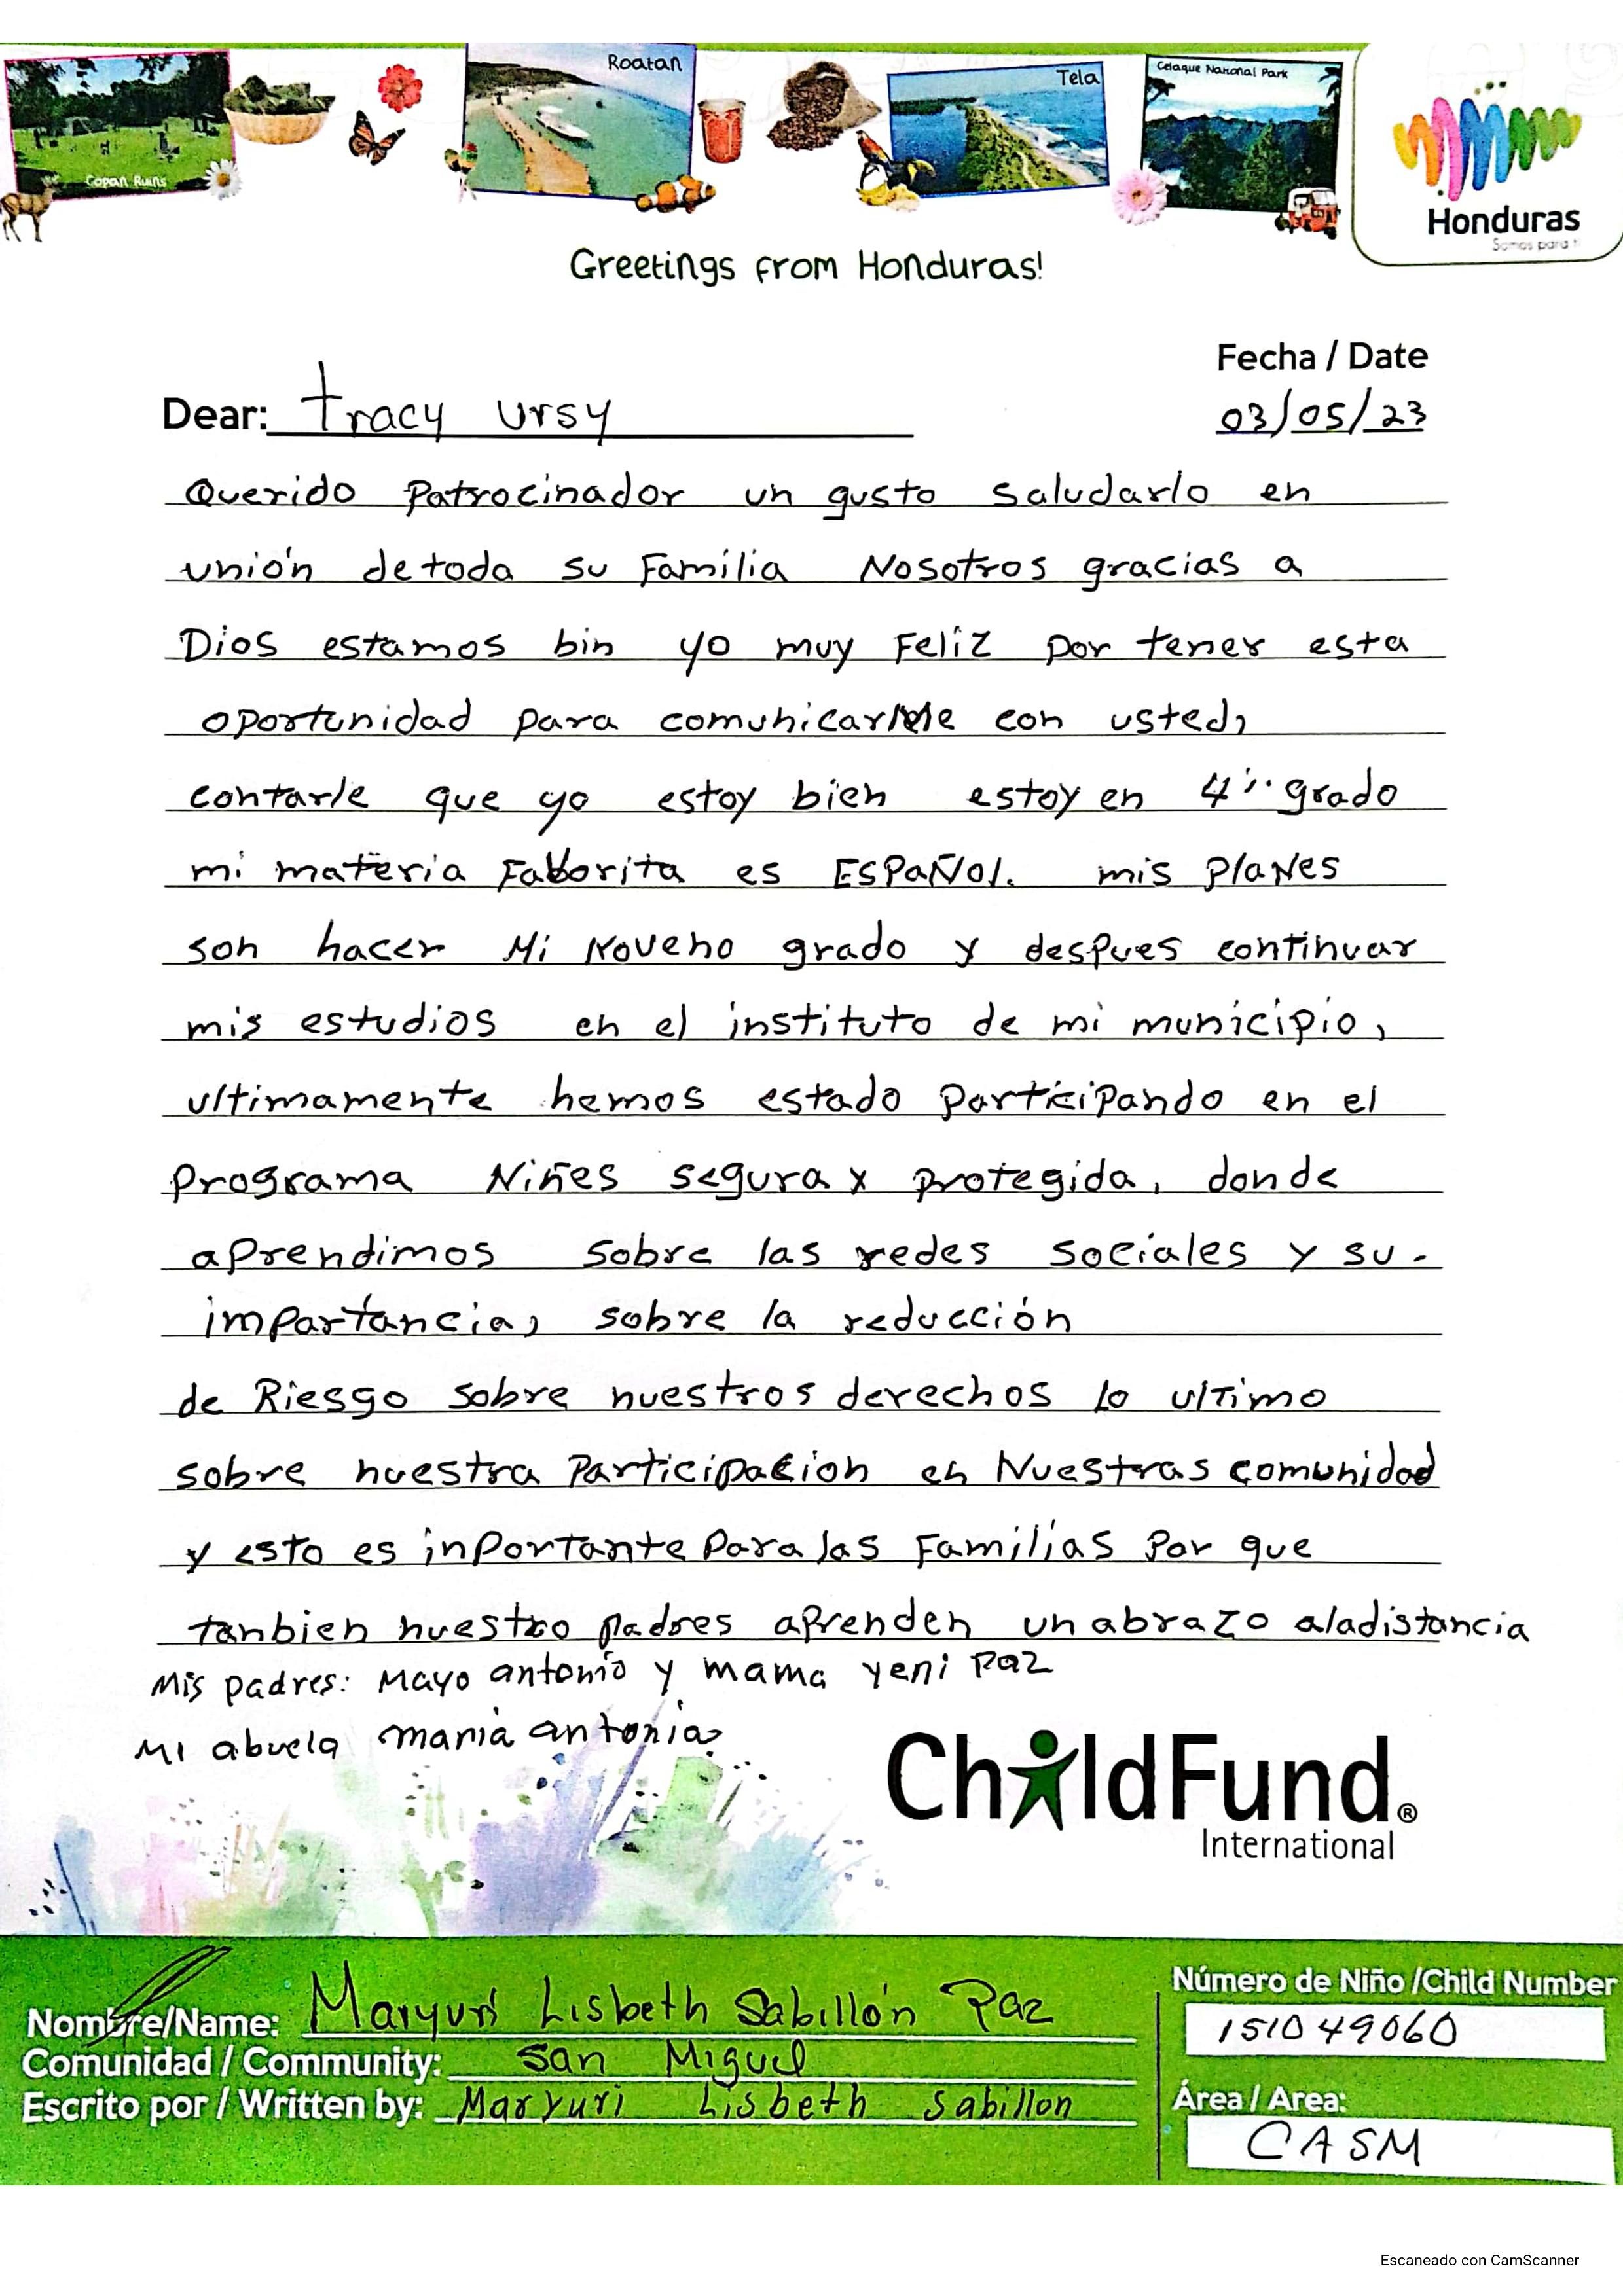 Roatan
Tela
Celaque National Park
Copan Ruins
Honduras
Somos para ti
Greetings from Honduras!
Fecha / Date
Dear: tracy ursy
03/05/23
Querido Patrocinador un gusto saludarlo en
unión de toda su Familia Nosotros gracias a
Dios estamos bin yo muy Feliz por tener esta
oportunidad para comunicarme con usted,
contarle que yo estoy bien estoy en 4 grado
mi materia Faborita es ESPAÑOl. mis PlaNes
son hacer Mi Noveno grado y despues continuar
mis estudios en el instituto de mi municipio,
ultimamente hemos estado participando en el
programa Niñes segura y protegida, donde
aprendimos sobre las redes sociales y su.
importancia, sobre la reducción
de Riesgo sobre nuestros derechos lo ultimo
sobre nuestra Participacion en Nuestras comunidad
y esto es inportante Para las Familias Por que
tanbien nuestro padres aprenden un abrazo aladistancia
Mis padres: Mayo antonio y mama yeni Paz
Mi abuela maria antonia
ChildFund®
International
Número de Niño /Child Number
Nombre/Name: Maryuri Lisbeth Sabillón Paz
151049060
Comunidad / Community: San Miguel
Escrito por / Written by: Maryuri Lisbeth Sabillon
Área / Area:
CASM
Escaneado con CamScanner